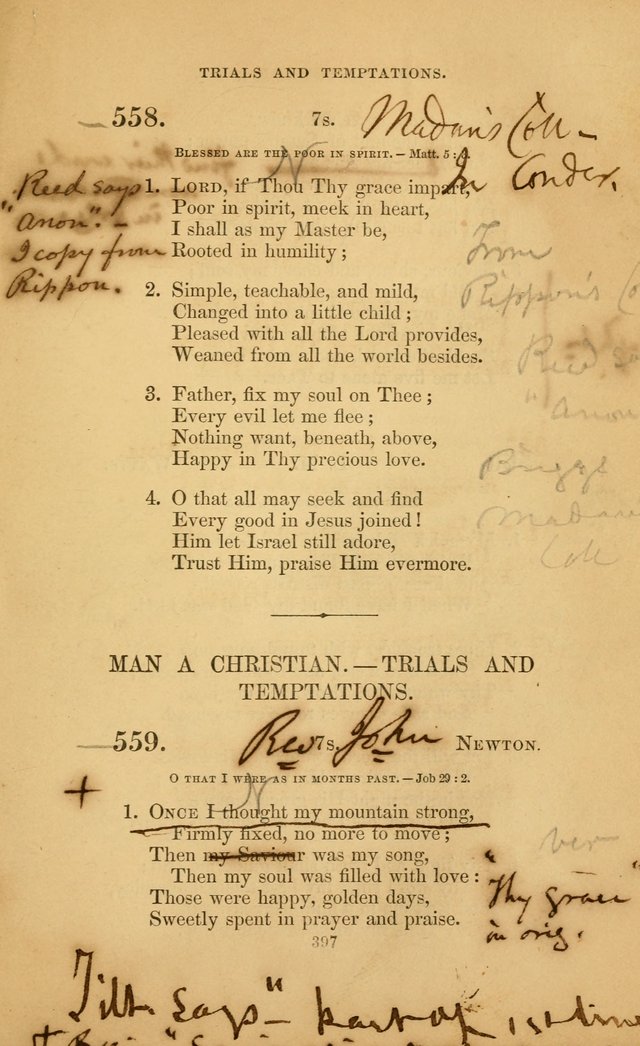 TRIALS AND TEMPTATIONS.
558.
7s.
Madan's Coll –
In Conder.
BLESSED ARE THE POOR IN SPIRIT. — Matt. 5 :
N
Reed says
"Anon". –
I copy from
Rippon.
1. LORD, if Thou Thy grace impart,
Poor in spirit, meek in heart,
I shall as my Master be,
Rooted in humility ;
From
Rippon's
2. Simple, teachable, and mild,
Changed into a little child ;
Pleased with all the Lord provides,
Weaned from all the world besides.
Reed
"Anon
3. Father, fix my soul on Thee ;
Every evil let me flee ;
Nothing want, beneath, above,
Happy in Thy precious love.
Briggs
Madan
Coll
4. O that all may seek and find
Every good in Jesus joined !
Him let Israel still adore,
Trust Him, praise Him evermore.
MAN A CHRISTIAN. — TRIALS AND
TEMPTATIONS.
559.
Rev 7s. John NEWTON.
O THAT I WERE AS IN MONTHS PAST. — Job 29 : 2.
N
+
1. ONCE I thought my mountain strong,
Firmly fixed, no more to move ;
Then my Saviour was my song,
Then my soul was filled with love :
Those were happy, golden days,
Sweetly spent in prayer and praise.
ver
"Thy grace"
in orig.
397
Tilt. says "– part of 1st line
+